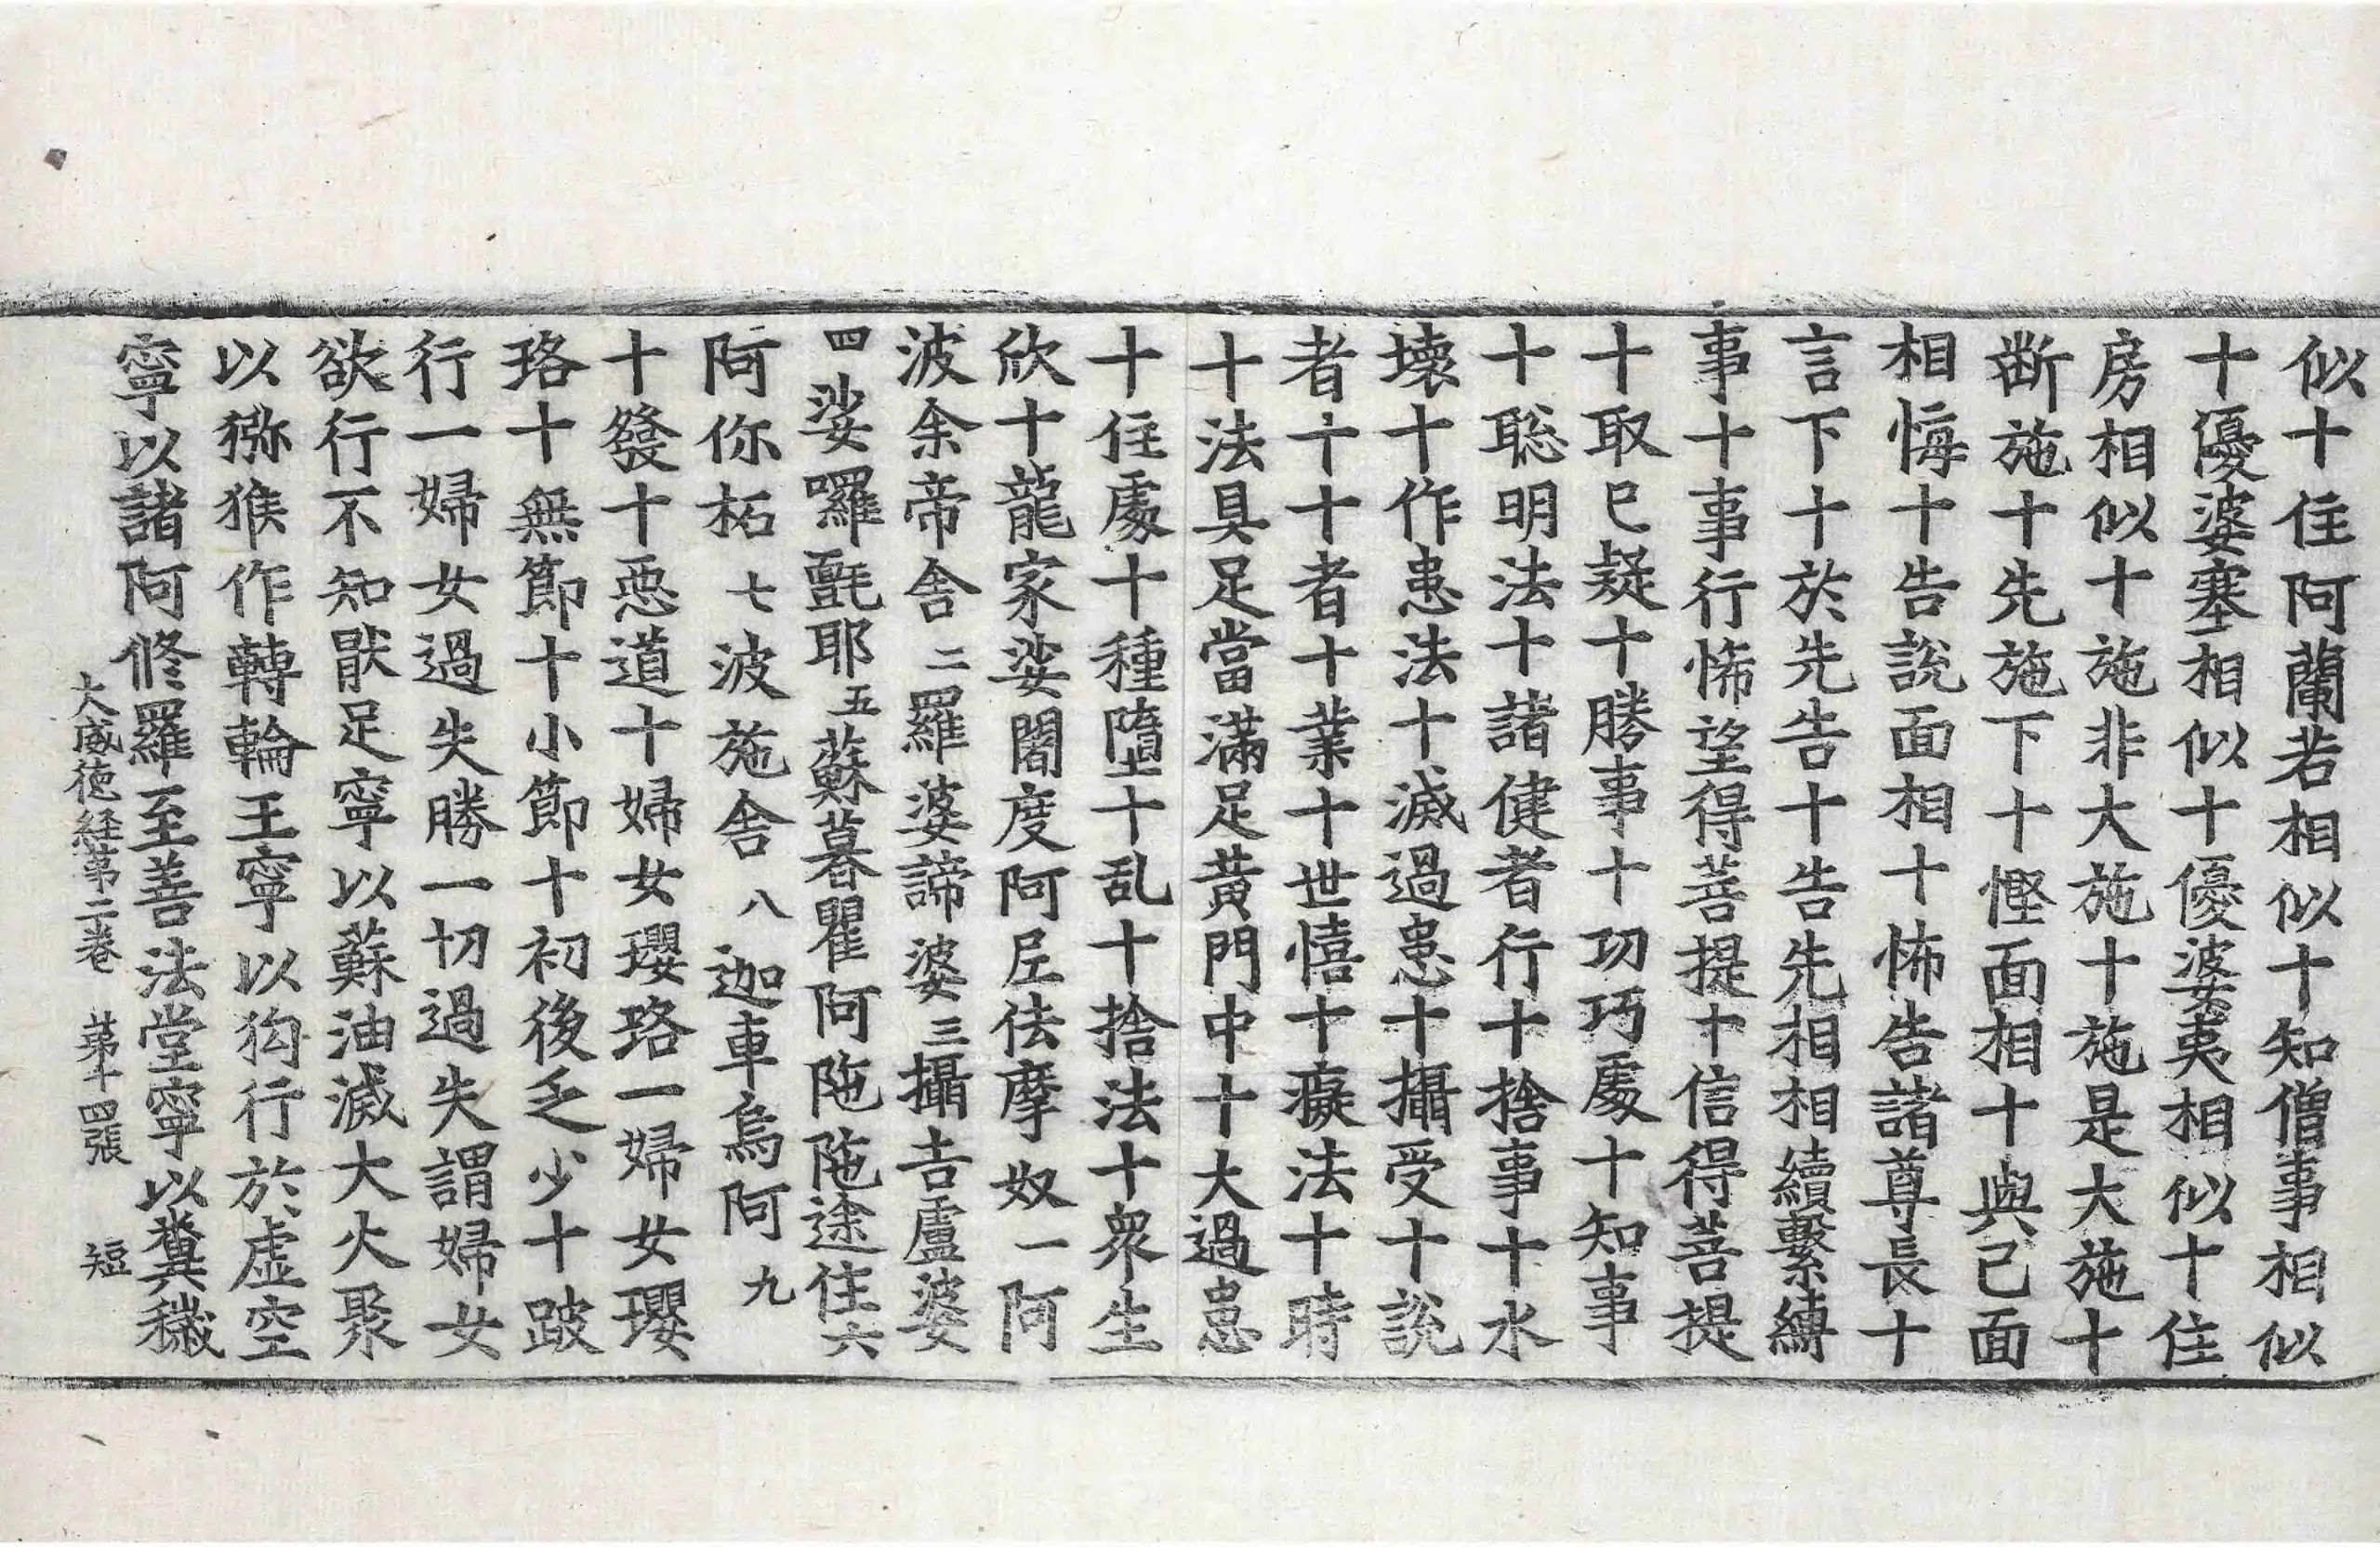 似十住阿蘭若相似十知僧事相似
十優婆塞相似十優婆夷相似十住
房相似十施非大施十施是大施十
斷施十先施下十慳面相十與己面
相悔十告說面相十怖告諸尊長十
言下十於先告十告先相相續繫縛
事十事行悕望得菩提十信得菩提
十取已疑十勝事十功巧處十知事
十聡明法十諸健者行十捨事十水
壞十作患法十滅過患十攝受十說
者十十者十業十世憘十癡法十時
十法具足當滿足黃門中十大過患
十住處十種墮十乱十捨法十衆生
欣十龍家娑闍度阿𡰱佉摩奴一阿
波余帝舍二羅婆諦婆三攝吉盧婆
四娑囉㲲耶五蘇暮瞿阿陁陁途住六
阿你柘七波施舍八迦車烏阿九
十發十惡道十婦女瓔珞一婦女瓔
珞十無節十小節十初後乏少十跛
行一婦女過失勝一切過失謂婦女
欲行不知猒足寧以蘇油滅大火聚
以獼猴作轉輪王寧以狗行於虛空
寧以諸阿修羅至善法堂寧以糞穢
大威德経第二卷 第十四張 短